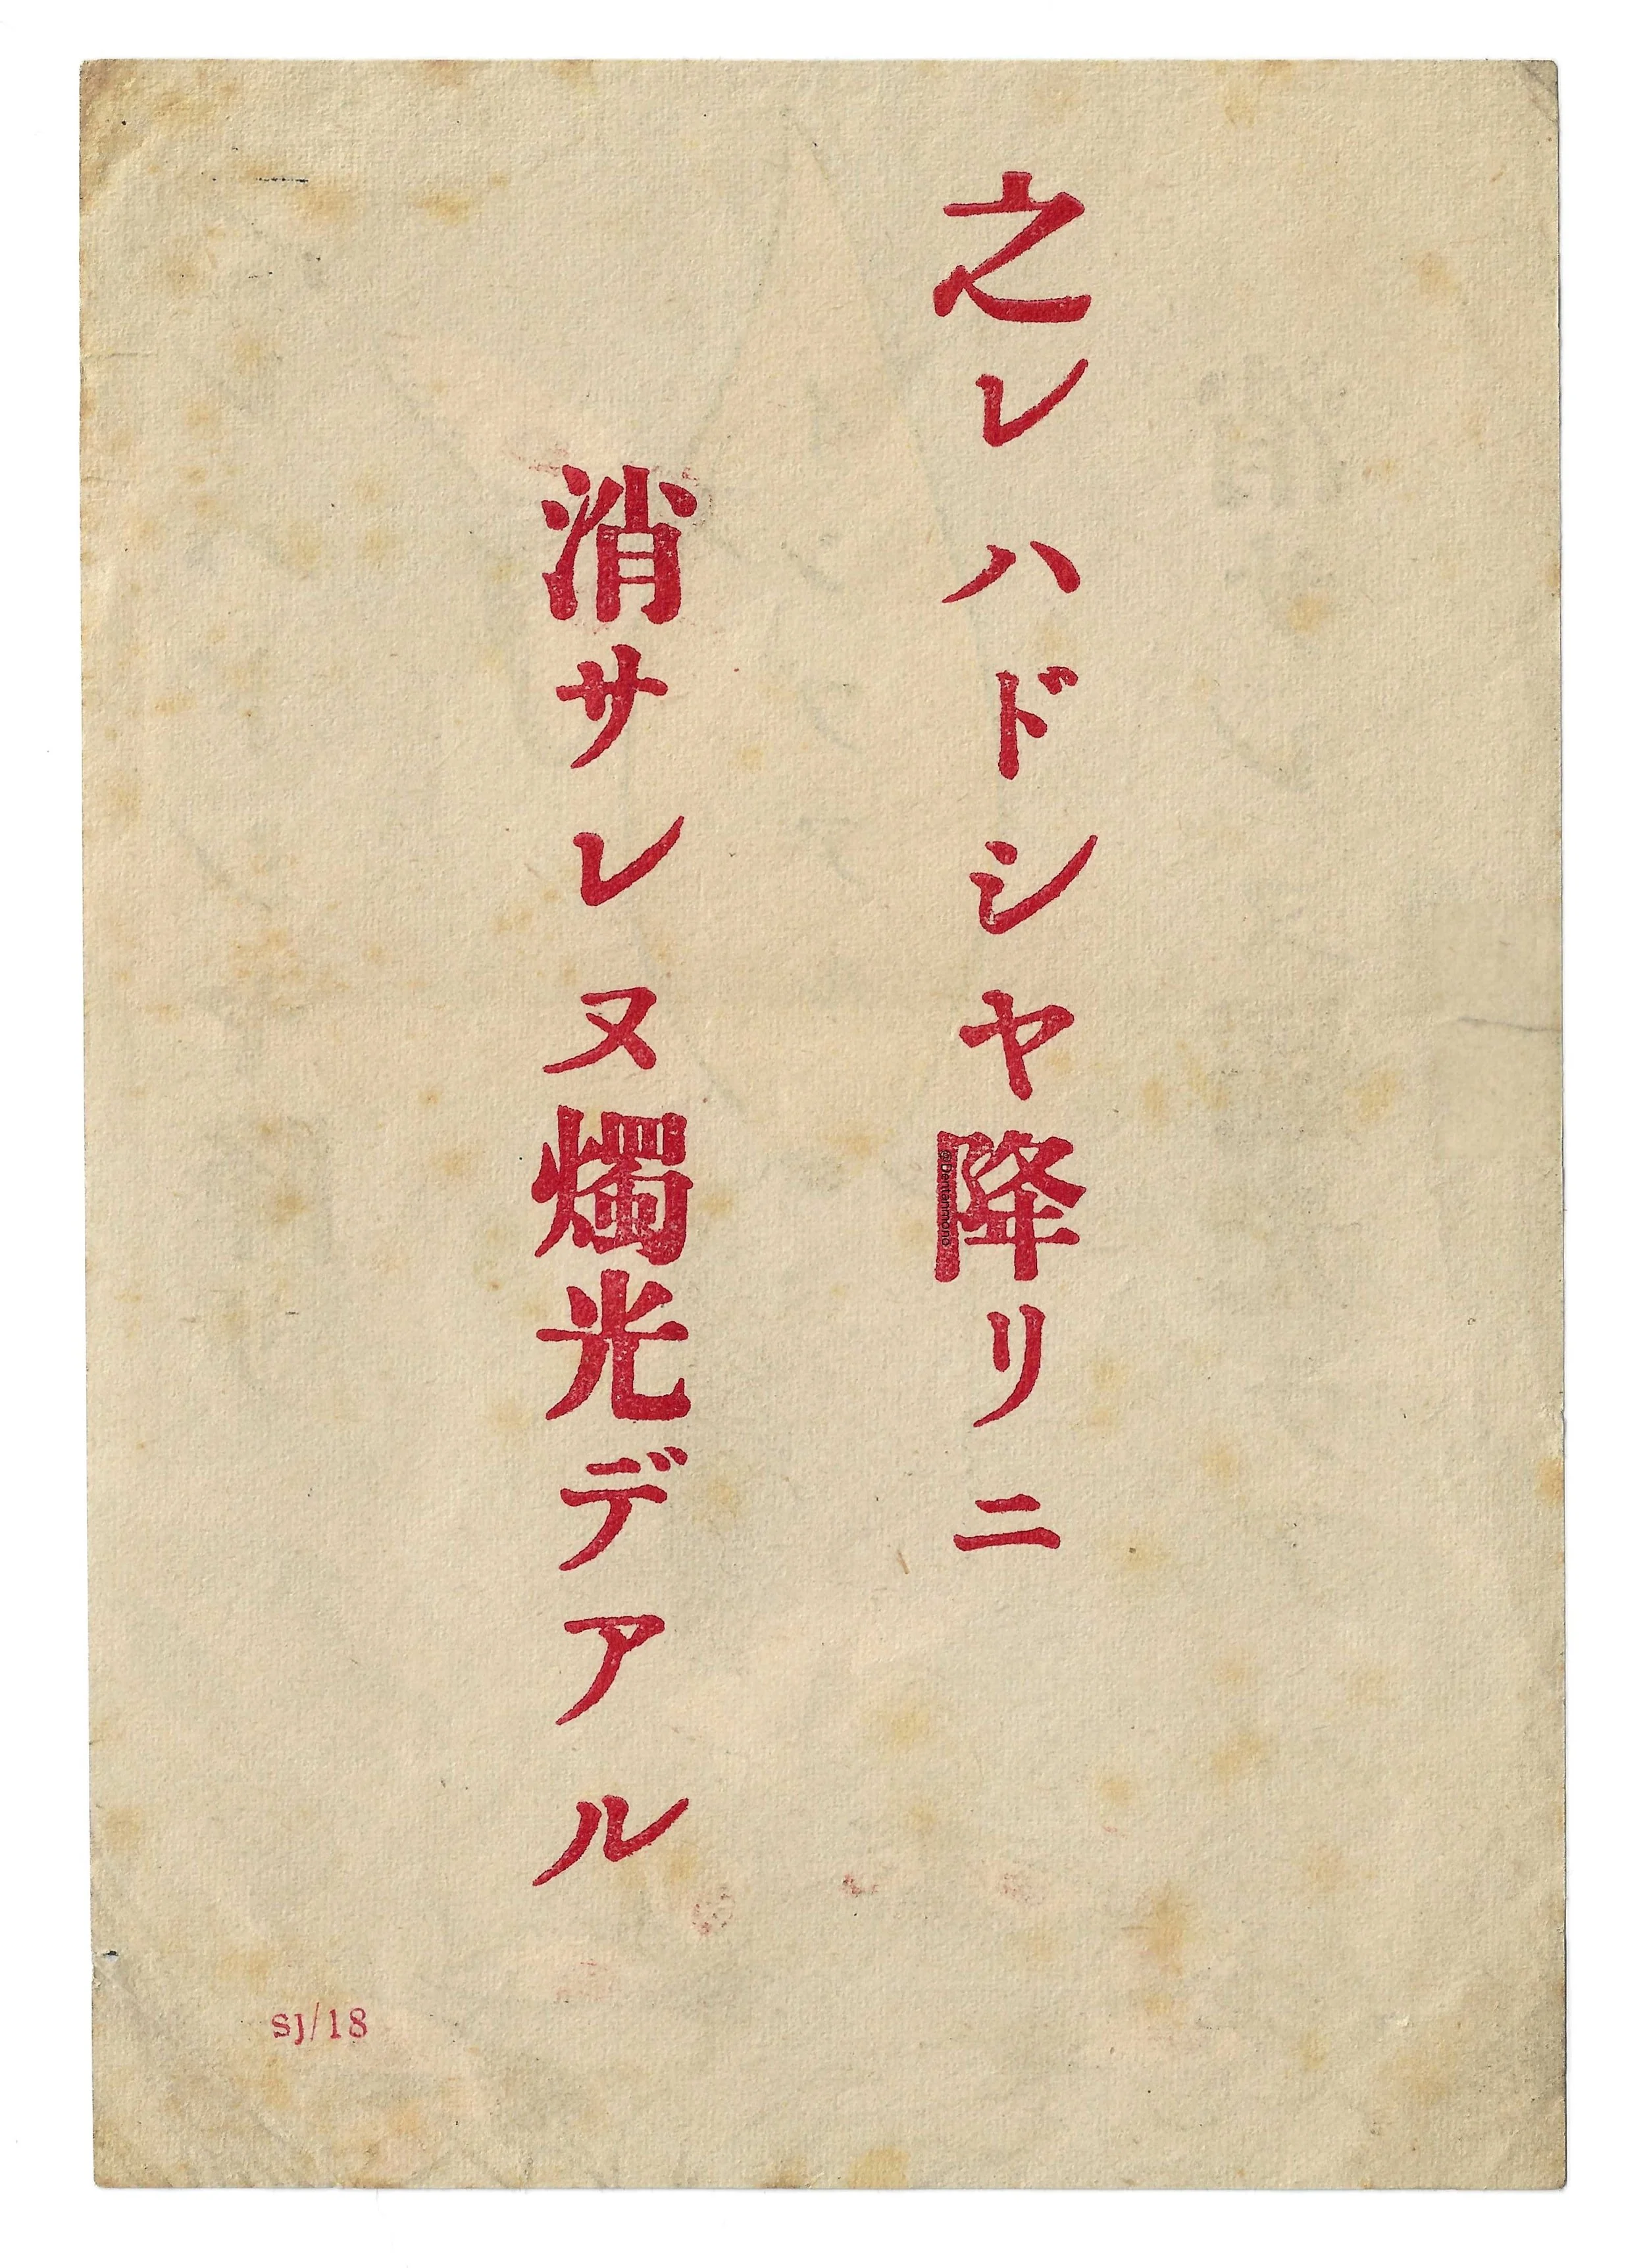 之レハドシヤ降リニ
消サレヌ燭光デアル
SJ/18
@Dentanmono